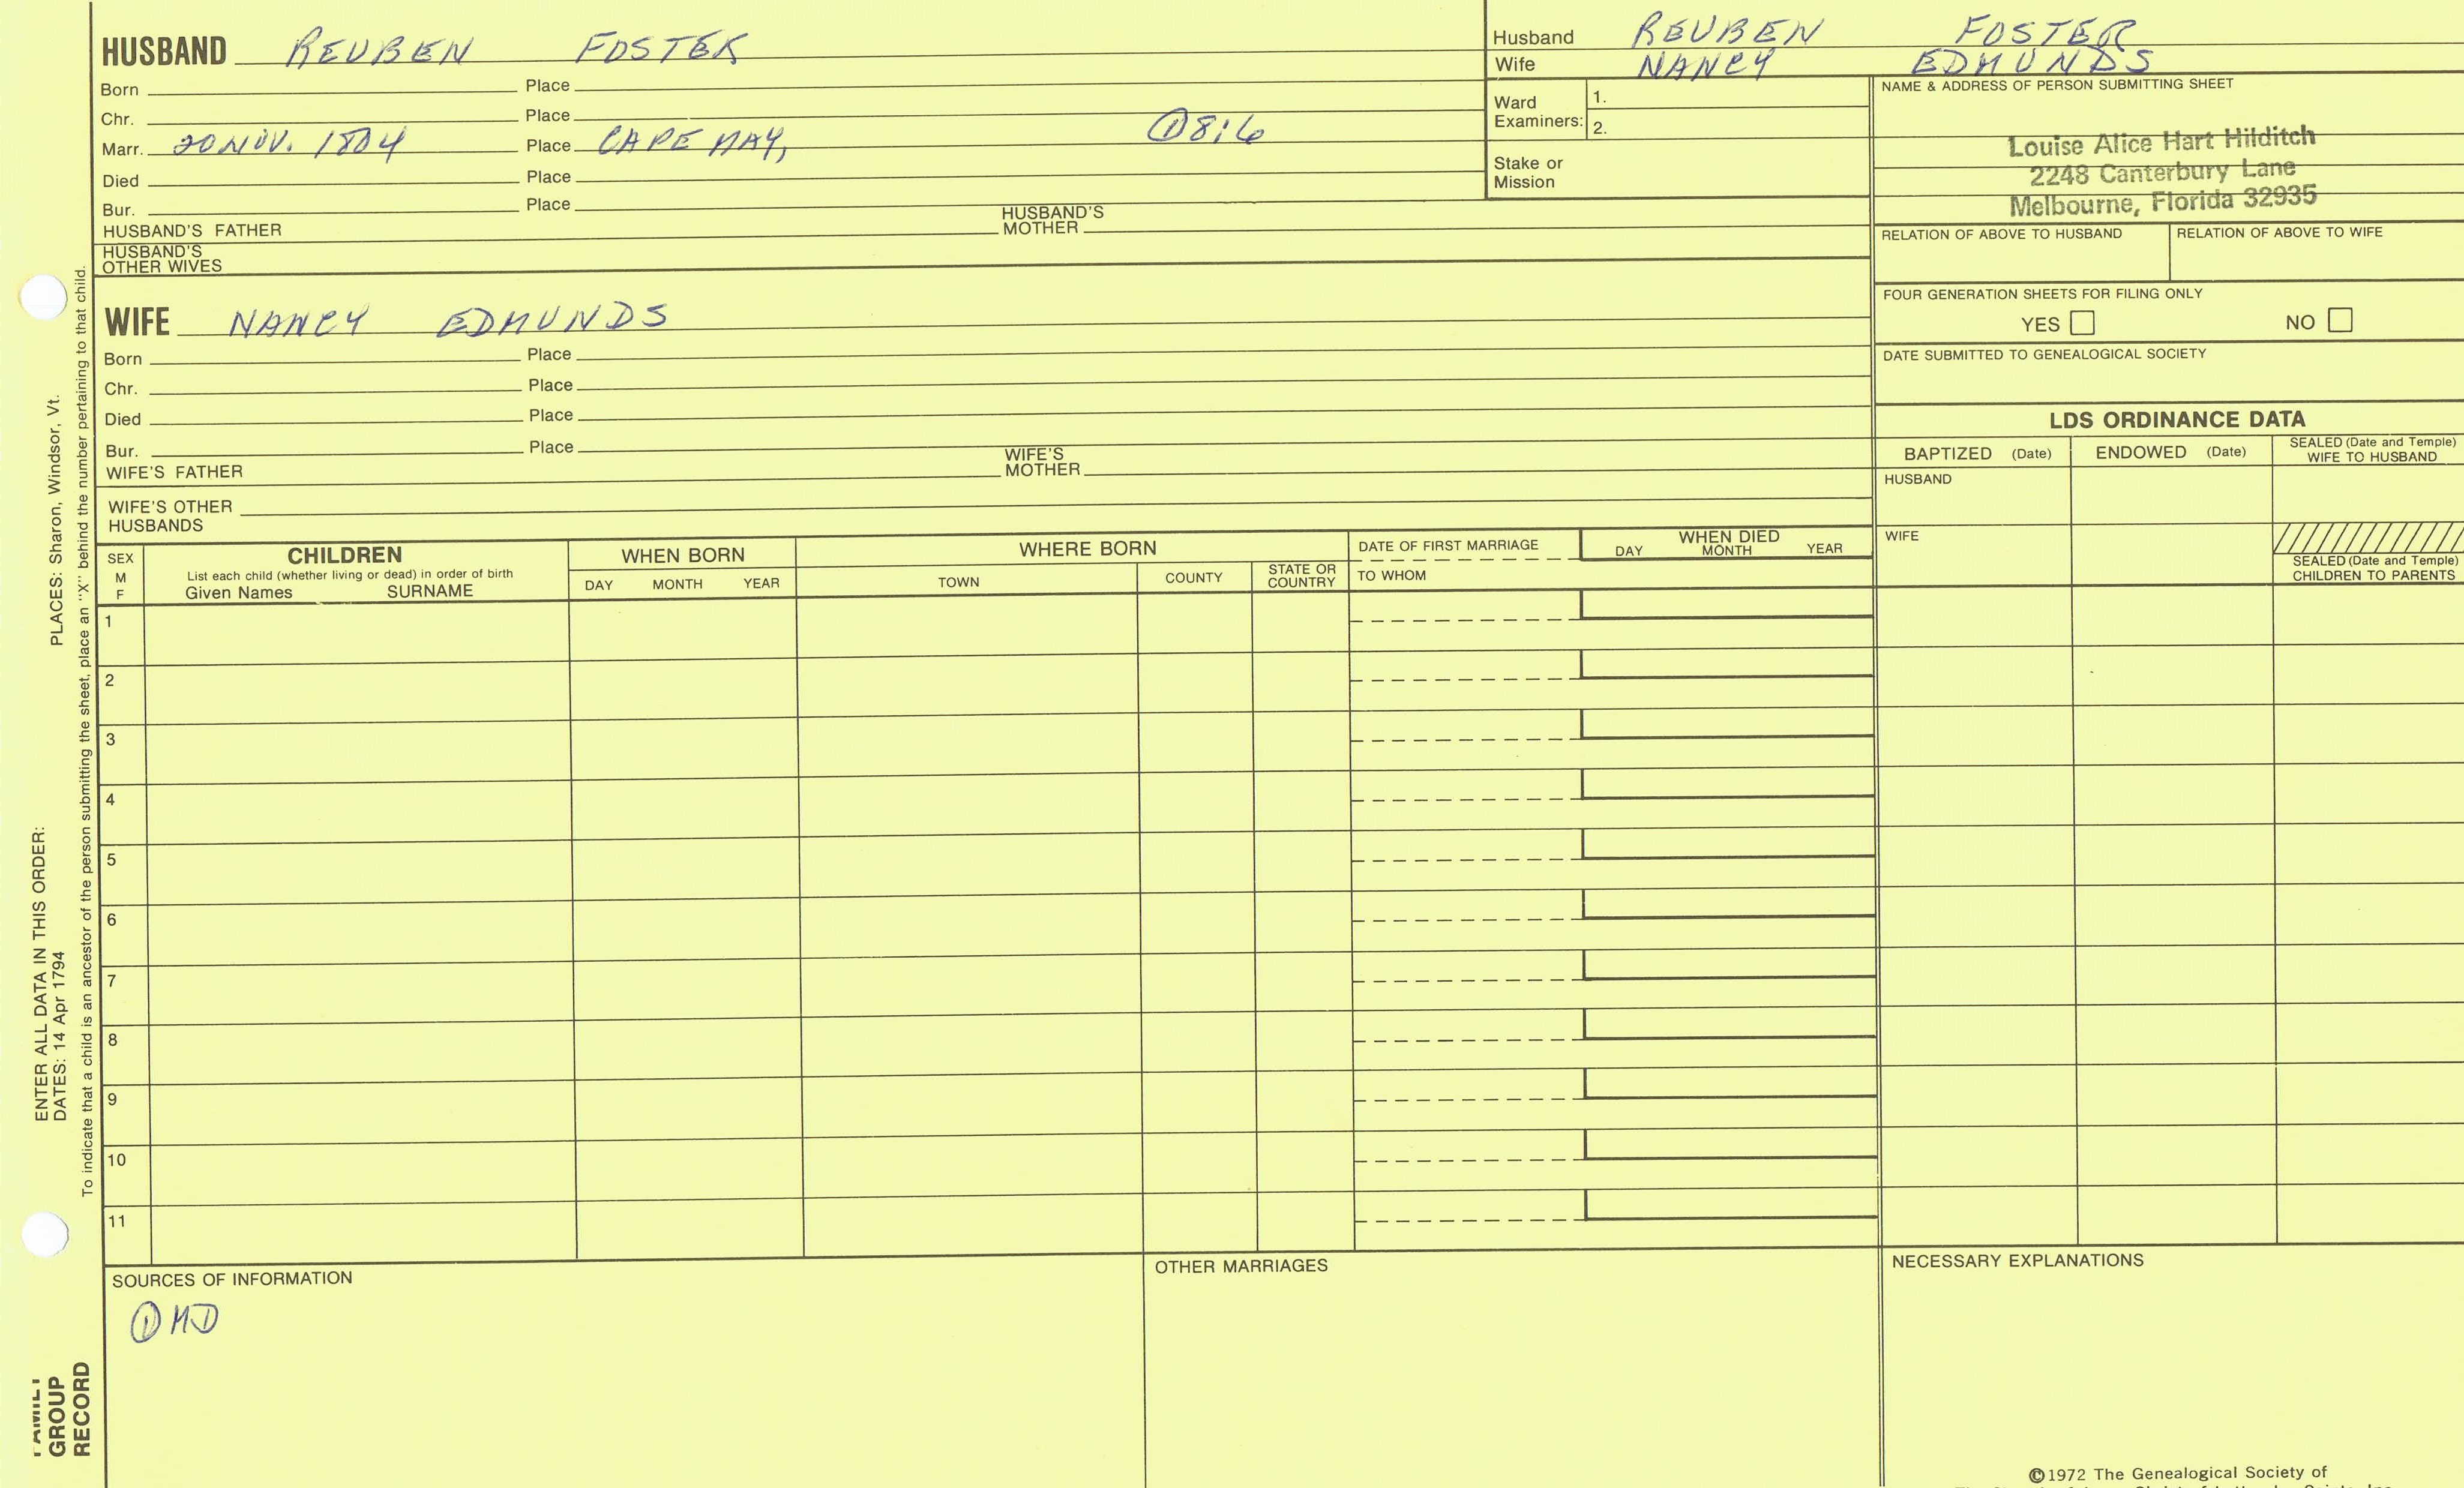 HUSBAND REUBEN FOSTER
Born Place
Chr. Place
Marr. 20 NOV. 1804 Place CAPE MAY, ① 8:6
Died Place
Bur. Place
HUSBAND'S FATHER HUSBAND'S MOTHER
HUSBAND'S OTHER WIVES
Husband REUBEN FOSTER
Wife NANCY EDMUNDS
Ward Examiners: 1.
2.
Stake or Mission
NAME & ADDRESS OF PERSON SUBMITTING SHEET
Louise Alice Hart Hilditch
2248 Canterbury Lane
Melbourne, Florida 32935
RELATION OF ABOVE TO HUSBAND RELATION OF ABOVE TO WIFE
FOUR GENERATION SHEETS FOR FILING ONLY
YES NO
DATE SUBMITTED TO GENEALOGICAL SOCIETY
WIFE NANCY EDMUNDS
Born Place
Chr. Place
Died Place
Bur. Place
WIFE'S FATHER WIFE'S MOTHER
WIFE'S OTHER HUSBANDS
LDS ORDINANCE DATA
BAPTIZED (Date) ENDOWED (Date) SEALED (Date and Temple) WIFE TO HUSBAND
HUSBAND
WIFE
SEALED (Date and Temple) CHILDREN TO PARENTS
SEX M F
CHILDREN
List each child (whether living or dead) in order of birth
Given Names SURNAME
WHEN BORN
DAY MONTH YEAR
WHERE BORN
TOWN COUNTY STATE OR COUNTRY
DATE OF FIRST MARRIAGE
TO WHOM
WHEN DIED
DAY MONTH YEAR
1
2
3
4
5
6
7
8
9
10
11
SOURCES OF INFORMATION
① MD
OTHER MARRIAGES
NECESSARY EXPLANATIONS
©1972 The Genealogical Society of
FAMILY
GROUP
RECORD
ENTER ALL DATA IN THIS ORDER:
DATES: 14 Apr 1794 PLACES: Sharon, Windsor, Vt.
To indicate that a child is an ancestor of the person submitting the sheet, place an "X" behind the number pertaining to that child.